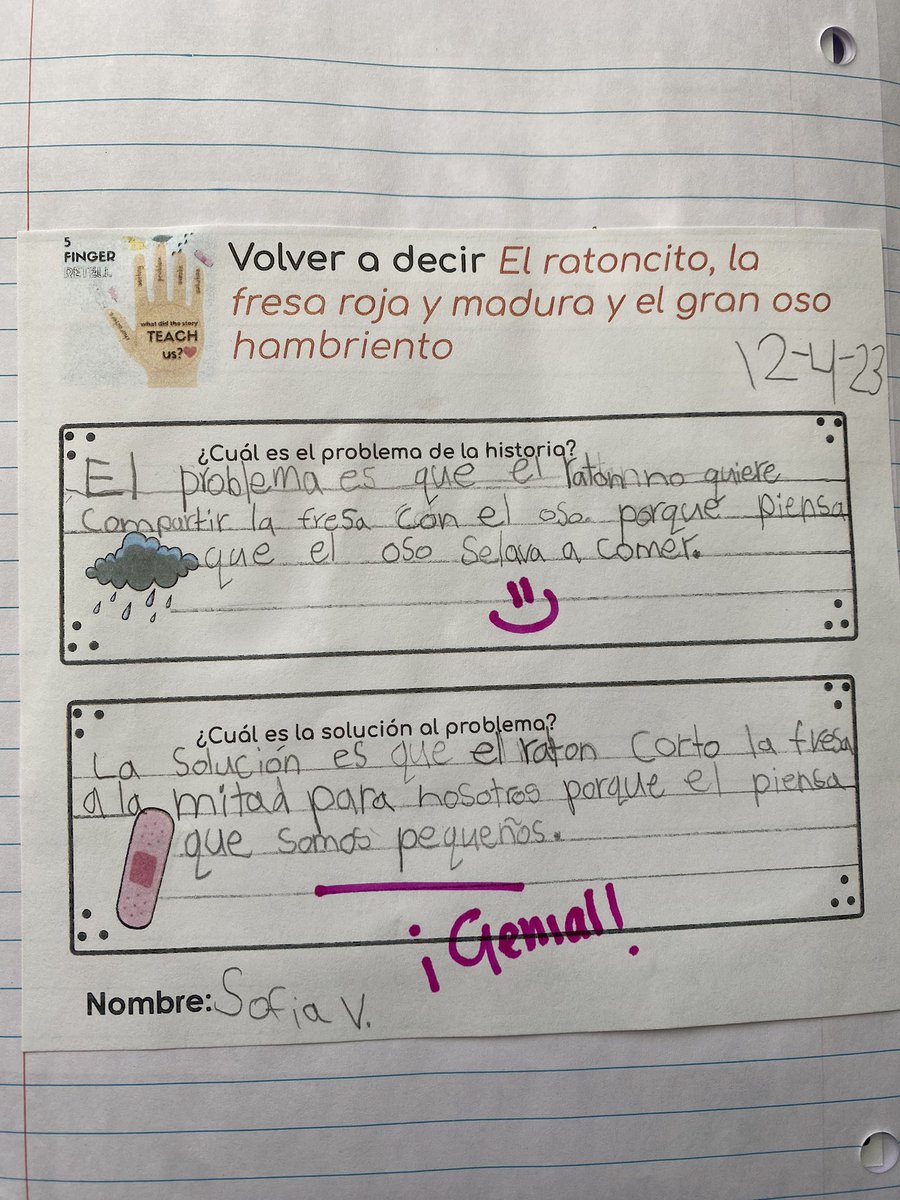 5
FINGER
RETELL
what did the story
TEACH
us?
Volver a decir El ratoncito, la
fresa roja y madura y el gran oso
hambriento
12-4-23
¿Cuál es el problema de la historia?
El problema es que el ratón no quiere
compartir la fresa con el oso porque piensa
que el oso selava a comer.
¿Cuál es la solución al problema?
La solución es que el raton corto la fresa
a la mitad para nosotros porque el piensa
que somos pequeños.
¡Genial!
Nombre: Sofia V.